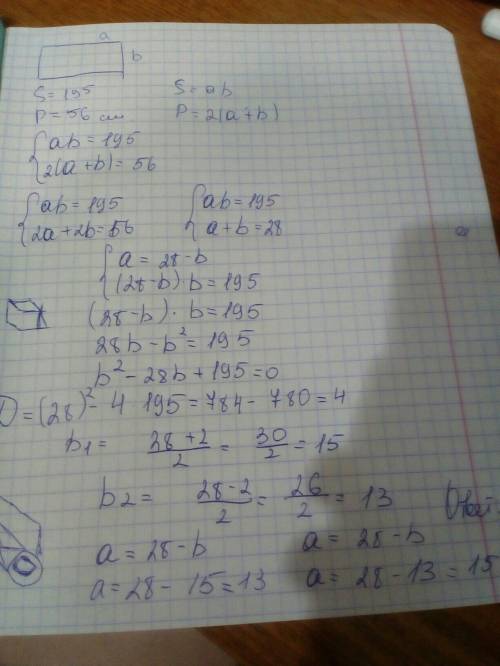 a
b
S = 195 S = ab
P = 56 см P = 2(a+b)
{ab = 195
2(a+b) = 56
{ab = 195 {ab = 195
2a+2b = 56 a+b = 28
{a = 28-b
(28-b)·b = 195
(28-b)·b = 195
28b-b² = 195
b²-28b+195=0
D = (28)²- 4 195 = 784- 780 = 4
b₁ = 28+2/2 = 30/2 = 15
b₂ = 28-2/2 = 26/2 = 13
a = 28-b a = 28-b
a = 28- 15 = 13 a = 28-13 = 15